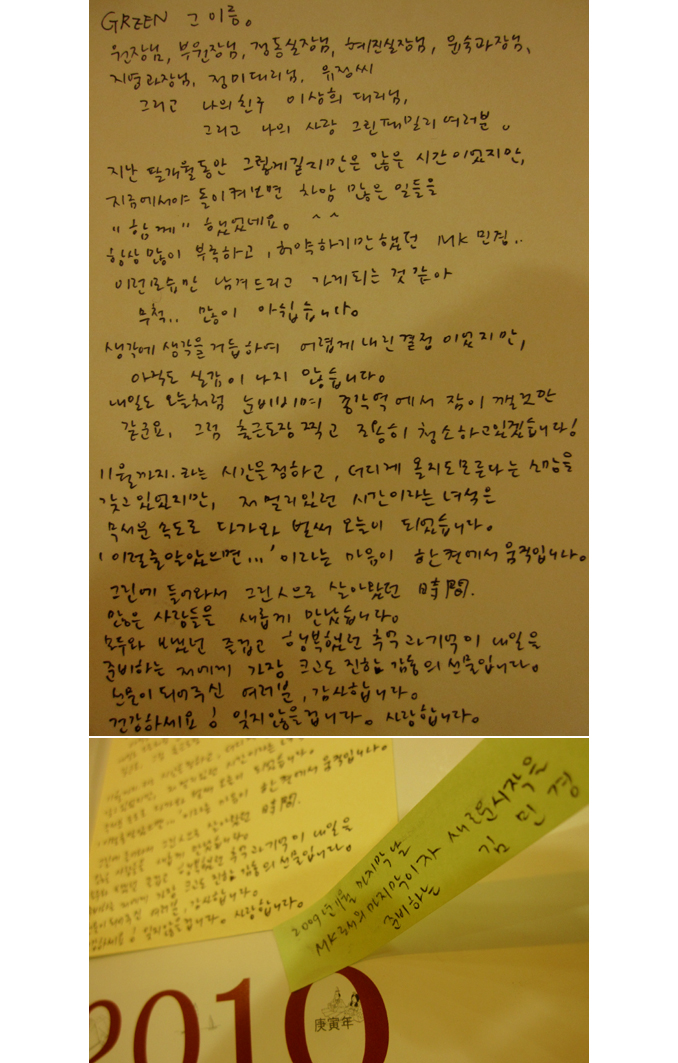 GREEN 그 이름。
원장님, 부원장님, 경동실장님, 혜진실장님, 윤숙과장님,
지영과장님, 정미대리님, 유정씨
그리고 나의친구 이상희 대리님,
그리고 나의 사랑 그린패밀리 여러분。
지난 몇개월동안 그렇게길지만은 않은 시간이었지만,
지금에서야 돌이켜보면 차암 많은 일들을
"함께" 했었네요。 ^ ^
항상 많이 부족하고, 허약하기만했던 MK 민경..
이런모습만 남겨드리고 가게되는 것 같아
무척.. 많이 아쉽습니다。
생각에 생각을거듭하여 어렵게 내린결정 이었지만,
아직도 실감이 나지 않습니다。
내일도 오늘처럼 눈비비며 종각역에서 잠이 깰것만
같군요, 그럼 출근도장 찍고 조용히 청소하고있겠습니다!
11월까지.라는 시간을정하고, 더디게 올지도모른다는 소망을
갖고있었지만, 저 멀리있던 시간이라는 녀석은
무서운 속도로 다가와 벌써 오늘이 되었습니다。
'이럴줄알았으면...' 이라는 마음이 한켠에서 움직입니다。
그린에 들어와서 그린人으로 살아왔던 時間.
많은 사람들을 새롭게 만났습니다。
모두와 보냈던 즐겁고 행복했던 추억과기억이 내일을
준비하는 저에게 가장 크고도 진한 감동의 선물입니다。
선물이 되어주신 여러분, 감사합니다。
건강하세요! 잊지않을겁니다。 사랑합니다。
2009년 11월 마지막날
MK로서의 마지막이자 새로운시작을
준비하는
김 민 경
2010
庚寅年